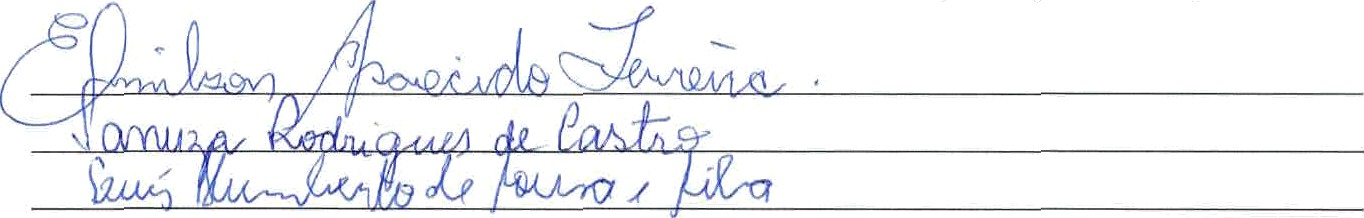 Edmilson Aparecido Ferreira.
Vanuza Rodrigues de Castro
Luís Humberto de Sousa e Silva